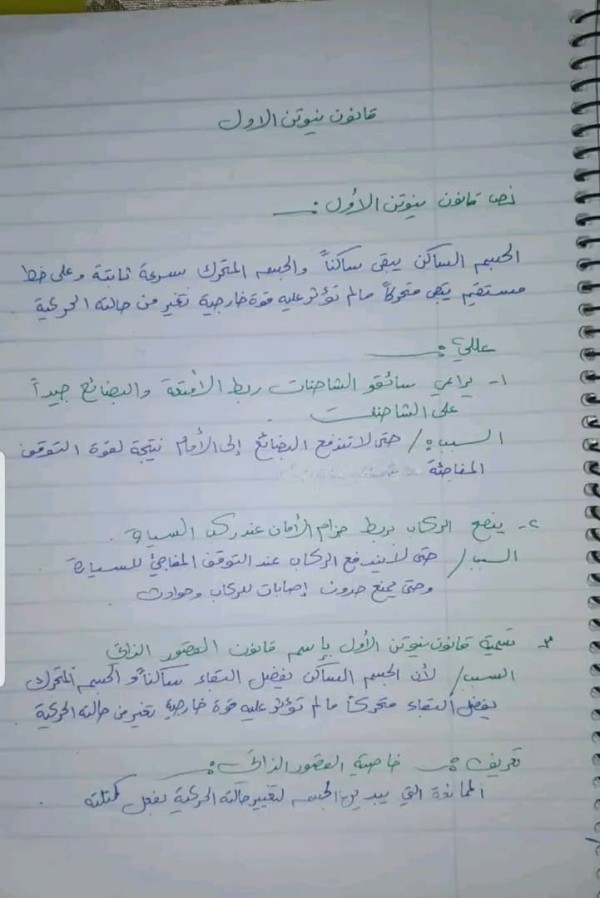 قانون نيوتن الاول
نص قانون نيوتن الأول :-
الجسم الساكن يبقى ساكناً والجسم المتحرك بسرعة ثابتة وعلى خط
مستقيم يبقى متحركاً مالم تؤثر عليه قوة خارجية تغير من حالته الحركية
عللي :-
١- يراعي سائقو الشاحنات ربط الأمتعة والبضائع جيداً
على الشاحنات
السبب / حتى لا تندفع البضائع إلى الأمام نتيجة لقوة التوقف
المفاجئة
٢- ينصح الركاب بربط حزام الأمان عند ركوب السيارة
السبب / حتى لا يندفع الركاب عند التوقف المفاجئ للسيارة
وحتى يمنع حدوث إصابات للركاب وحوادث
٣- تسمية قانون نيوتن الأول بإسم قانون القصور الذاتي
السبب / لأن الجسم الساكن يفضل البقاء ساكناً و الجسم المتحرك
يفضل البقاء متحركاً مالم تؤثر عليه قوة خارجية تغير من حالته الحركية
تعريف :- خاصية القصور الذاتي :-
الممانعة التي يبديها الجسم لتغيير حالته الحركية بفعل كتلته